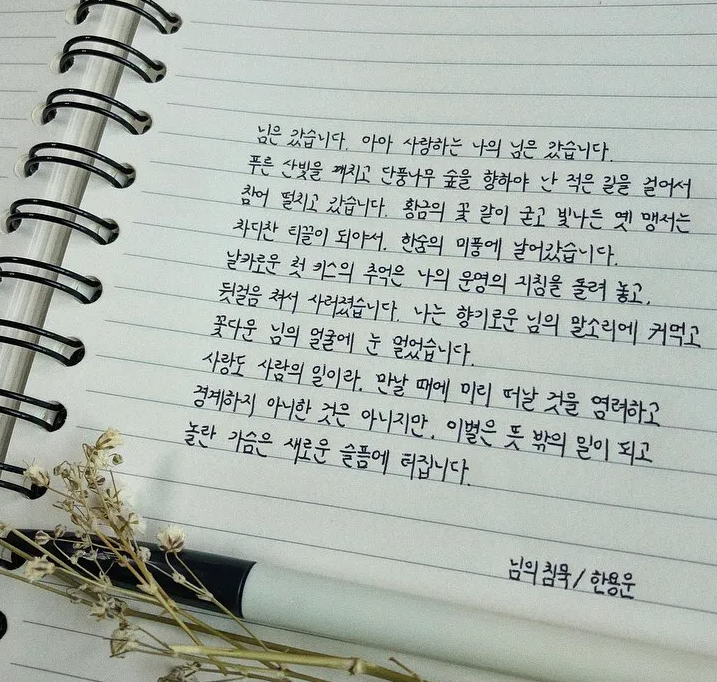 님은 갔습니다. 아아 사랑하는 나의 님은 갔습니다.
푸른 산빛을 깨치고 단풍나무 숲을 향하야 난 적은 길을 걸어서
참어 떨치고 갔습니다. 황금의 꽃 같이 굳고 빛나든 옛 맹서는
차디찬 티끌이 되야서. 한숨의 미풍에 날어갔습니다.
날카로운 첫 키스의 추억은 나의 운명의 지침을 돌려 놓고.
뒷걸음 쳐서 사러졌습니다. 나는 향기로운 님의 말소리에 커먹고
꽃다운 님의 얼굴에 눈 멀었습니다.
사랑도 사람의 일이라. 만날 때에 미리 떠날 것을 염려하고
경계하지 아니한 것은 아니지만. 이별은 뜻 밖의 일이 되고
놀란 가슴은 새로운 슬픔에 터집니다.
님의 침묵 / 한용운